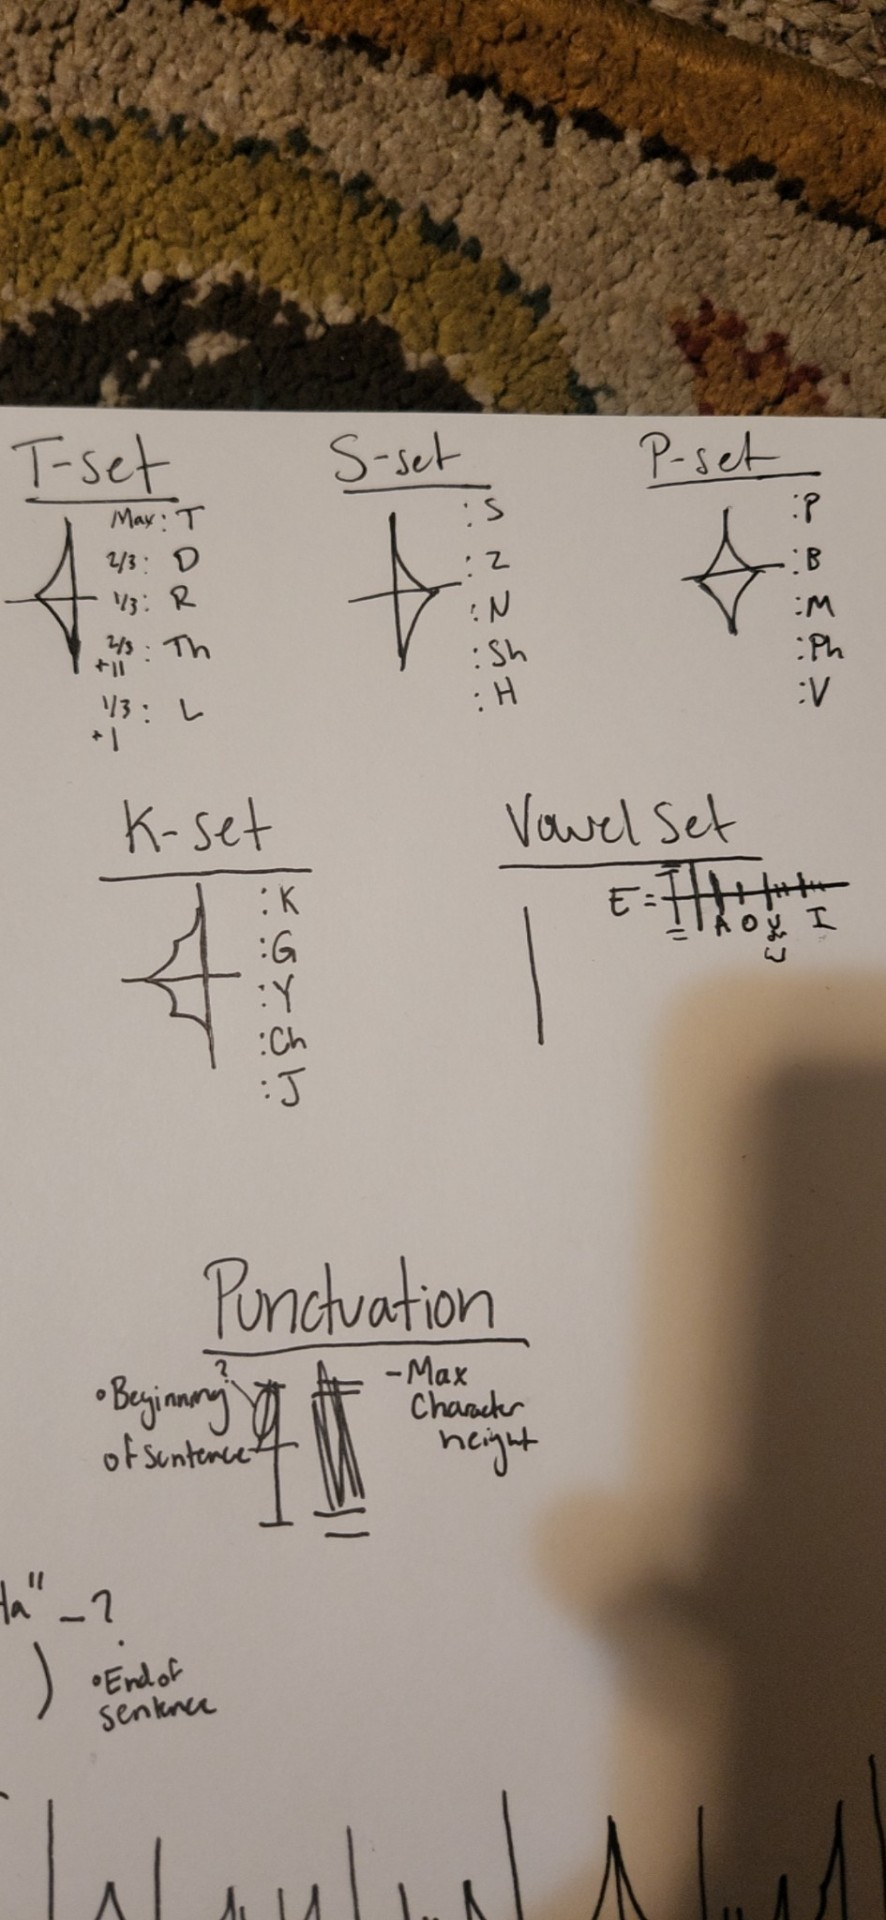 T-set
Max: T
2/3: D
1/3: R
2/3 +11 : Th
1/3 +1 : L
S-set
: S
: Z
: N
: Sh
: H
P-set
: P
: B
: M
: Ph
: V
K-set
: K
: G
: Y
: Ch
: J
Vowel Set
E =
A O I
Punctuation
?
• Beginning
of sentence
- Max
Character
height
Ha" - ?
) • End of
sentence